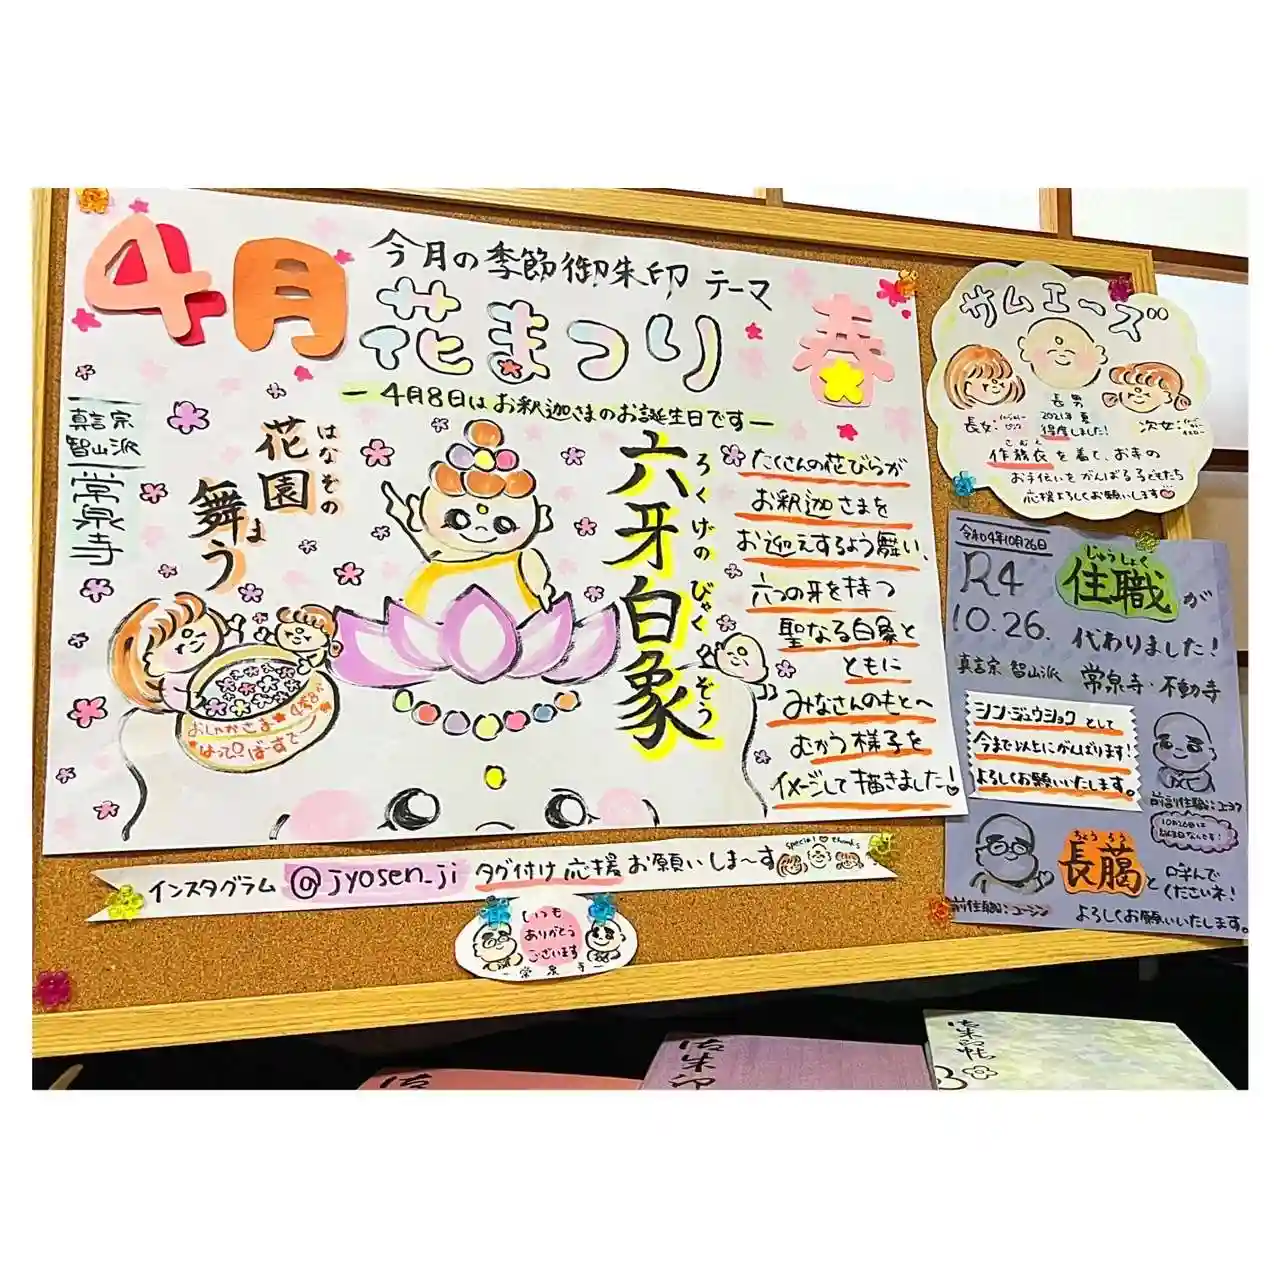 4月
今月の季節御朱印 テーマ
花まつり
春
ー4月8日はお釈迦さまのお誕生日ですー
真言宗
智山派
常泉寺
はなぞの
花園
舞う
ま
六牙白象
ろくげの びゃくぞう
たくさんの花びらが
お釈迦さまを
お迎えするよう舞い、
六つの牙を持つ
聖なる白象と
ともに
みなさんのもとへ
むかう様子を
イメージして描きました!
おしゃかさま
はっぴーばーすでー
インスタグラム @jyosen_ji タグ付け応援お願いしま〜す
special thanks
いつも
ありがとう
ございます
常泉寺
サムエーズ
長男
2021年夏
得度しました!
長女:
次女:
さむえ
作務衣を着て、お寺の
お手伝いをがんばる子どもたち
応援よろしくお願いします
令和04年10月26日
R4
10.26.
じゅうしょく
住職が
代わりました!
真言宗 智山派 常泉寺・不動寺
シン・ジュウショクとして
今まで以上にがんばります!
よろしくお願いいたします。
前副住職:ユーコウ
10月26日は
ちょうろう
長﨟と
呼んで
くださいネ!
前住職:ユーシン
よろしくお願いいたします。
御朱印
御朱印帖